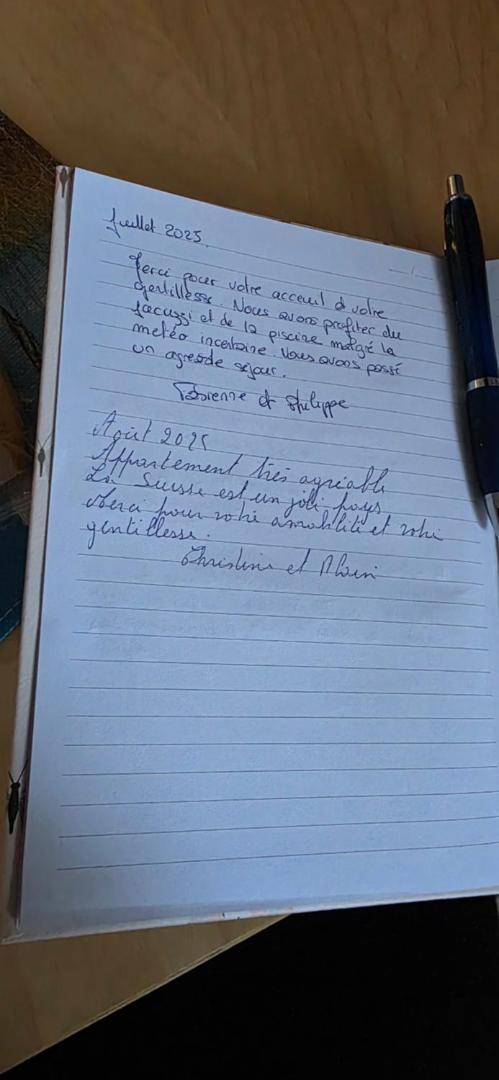 Juillet 2025
Merci pour votre acceuil & votre
gentillesse. Nous avons profiter du
jacuzzi et de la piscine malgré la
météo incertaine. Nous avons passé
un agréable séjour.
Fabienne et Philippe
Août 2025
Appartement très agréable
La Suisse est un joli pays
Merci pour votre amabilité et votre
gentillesse.
Christine et Alain